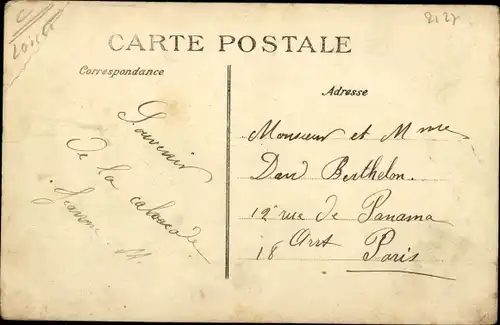 2127
CARTE POSTALE
Correspondance
Adresse
Souvenir
de la
Jeanne
Monsieur et Mme
Berthelon
12 rue de Panama
18 Arrt Paris